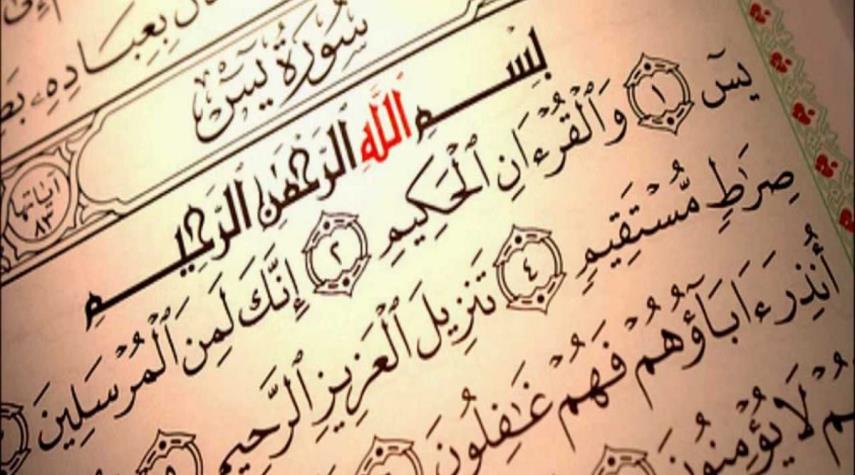 بِعِبَادِهِۦ
سُورَةُ يسٓ
آيَاتُهَا ٨٣
بِسْمِ اللَّهِ الرَّحْمَٰنِ الرَّحِيمِ
يسٓ ١ وَٱلْقُرْءَانِ ٱلْحَكِيمِ ٢ إِنَّكَ لَمِنَ ٱلْمُرْسَلِينَ
صِرَٰطٍ مُّسْتَقِيمٍ ٤ تَنزِيلَ ٱلْعَزِيزِ ٱلرَّحِيمِ ٥
أُنذِرَ ءَابَآؤُهُمْ فَهُمْ غَٰفِلُونَ ٦
لَا يُؤْمِنُونَ